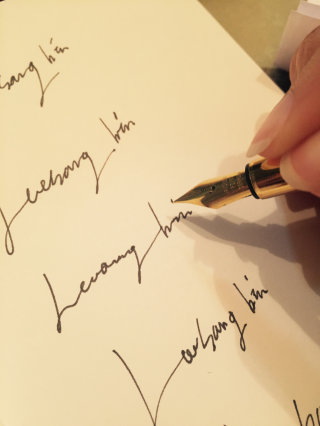 sang bin
Leesang bin
Leesang bin
Leesang bin